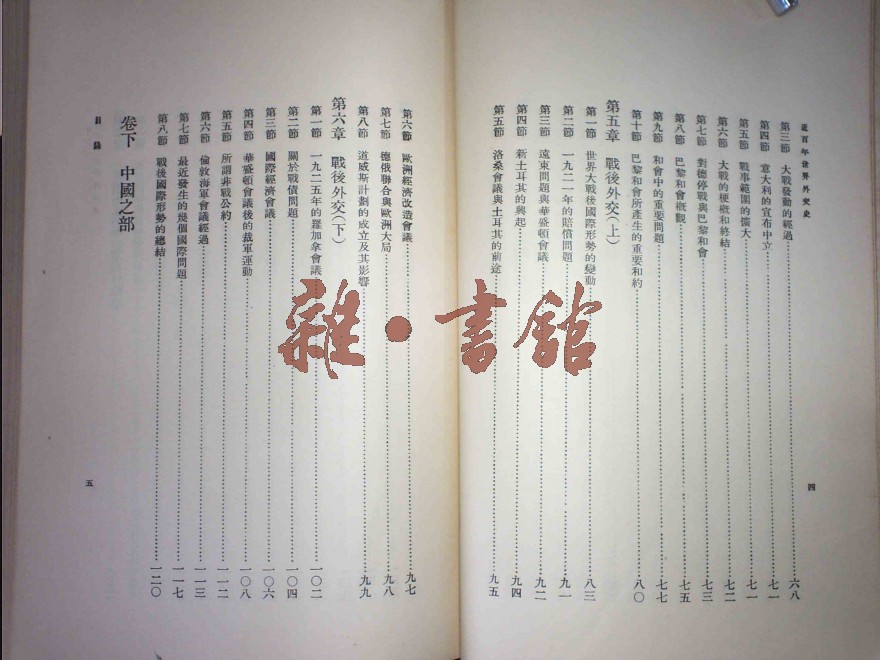 近百年世界外交史
第三節 大戰發動的經過 六八
第四節 意大利的宣布中立 七一
第五節 戰事範圍的擴大 七一
第六節 大戰的梗概和終結 七二
第七節 對德停戰與巴黎和會 七三
第八節 巴黎和會概觀 七五
第九節 和會中的重要問題 七七
第十節 巴黎和會所產生的重要和約 八〇
第五章 戰後外交(上)
第一節 世界大戰後國際形勢的變動 八三
第二節 一九二一年的賠償問題 九一
第三節 遠東問題與華盛頓會議 九二
第四節 新土耳其的興起 九四
第五節 洛桑會議與土耳其的前途 九五
四
第六節 歐洲經濟改造會議 九七
第七節 德俄聯合與歐洲大局 九八
第八節 道威斯計劃的成立及其影響 九九
第六章 戰後外交(下)
第一節 一九二五年的羅加拿會議 一〇二
第二節 關於戰債問題 一〇四
第三節 國際經濟會議 一〇六
第四節 華盛頓會議後的裁軍運動 一〇八
第五節 所謂非戰公約 一一二
第六節 倫敦海軍會議經過 一一三
第七節 最近發生的幾個國際問題 一一七
第八節 戰後國際形勢的總結 一二〇
卷下 中國之部
目錄
五
雜·書館